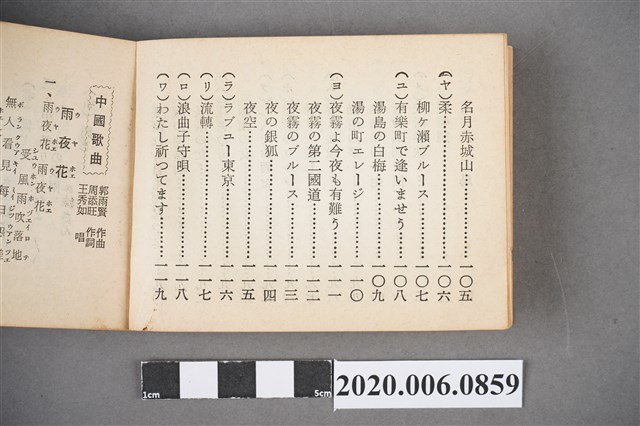 名月赤城山……………一〇五
(ヤ)柔……………一〇六
柳ヶ瀬ブルース……………一〇七
(ユ)有樂町で逢いませう……………一〇八
湯島の白梅……………一〇九
湯の町エレージ……………一一〇
(ヨ)夜霧よ今夜も有難う……………一一一
夜霧の第二國道……………一一二
夜霧のブルース……………一一三
夜の銀狐……………一一四
夜空……………一一五
(ラ)ラブユー東京……………一一六
(リ)流轉……………一一七
(ロ)浪曲子守唄……………一一八
(ワ)わたし祈つてます……………一一九
中國歌曲
雨夜花
郭雨賢 作曲
周添旺 作詞
王秀如 唱
一、雨夜花 雨夜花
受風雨吹落地
無人看見每日怨
1cm
5cm
2020.006.0859